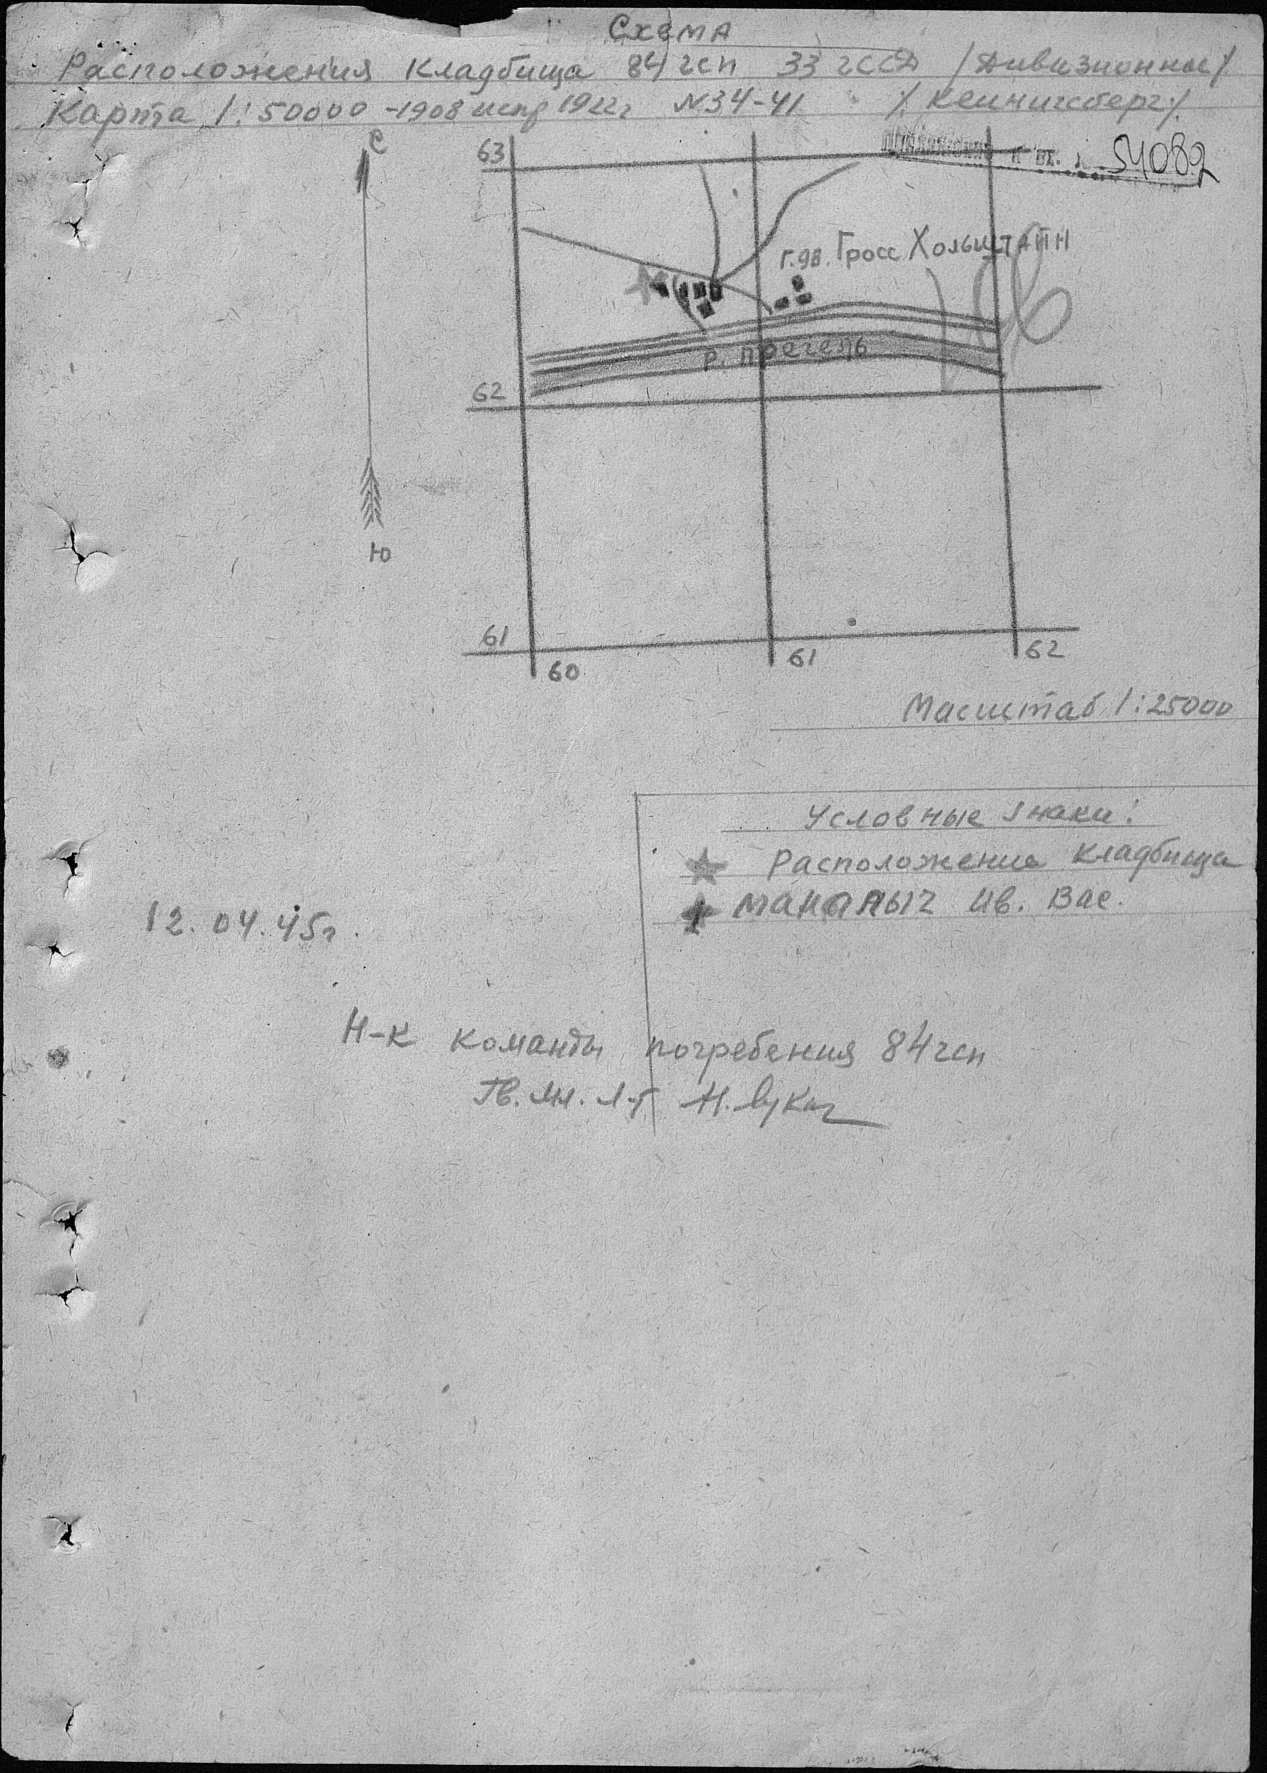 Схема
Расположения кладбища 84 гсп 33 гссд /Дивизионное/
Карта 1:50000 -1908 испр 1922г N34-41 /Кенигсберг/
С
54082
63
г.дв. Гросс Хольштайн
р. Прегель
62
Ю
61
60
61
62
Масштаб 1:25000
Условные знаки:
Расположение кладбища
Ив. Вас.
12.04.45г.
Н-к команды погребения 84 гсп
Гв. мл. л-т